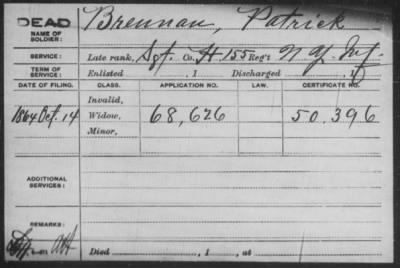 DEAD
NAME OF SOLDIER: Brennan, Patrick
SERVICE: Late rank, Sgt. Co. H. 155 Reg't N.Y. Inf.
TERM OF SERVICE: Enlisted , 1 Discharged , 1
DATE OF FILING. CLASS. APPLICATION NO. LAW. CERTIFICATE NO.
Invalid,
1864 Oct. 14 Widow, 68,626 50.396
Minor,
ADDITIONAL SERVICES:
REMARKS:
Died , 1 , at